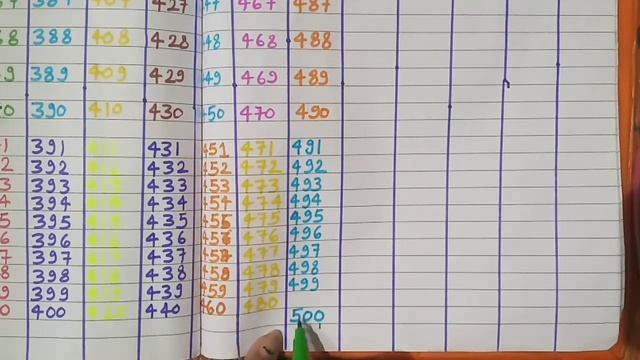 387 407 427 47 467 487
88 388 408 428 48 468 488
9 389 409 429 49 469 489
0 390 410 430 50 470 490
1 391 411 431 451 471 491
2 392 412 432 452 472 492
3 393 413 433 453 473 493
4 394 414 434 454 474 494
5 395 415 435 455 475 495
6 396 416 436 456 476 496
7 397 417 437 457 477 497
8 398 418 438 458 478 498
9 399 419 439 459 479 499
0 400 420 440 460 480
500